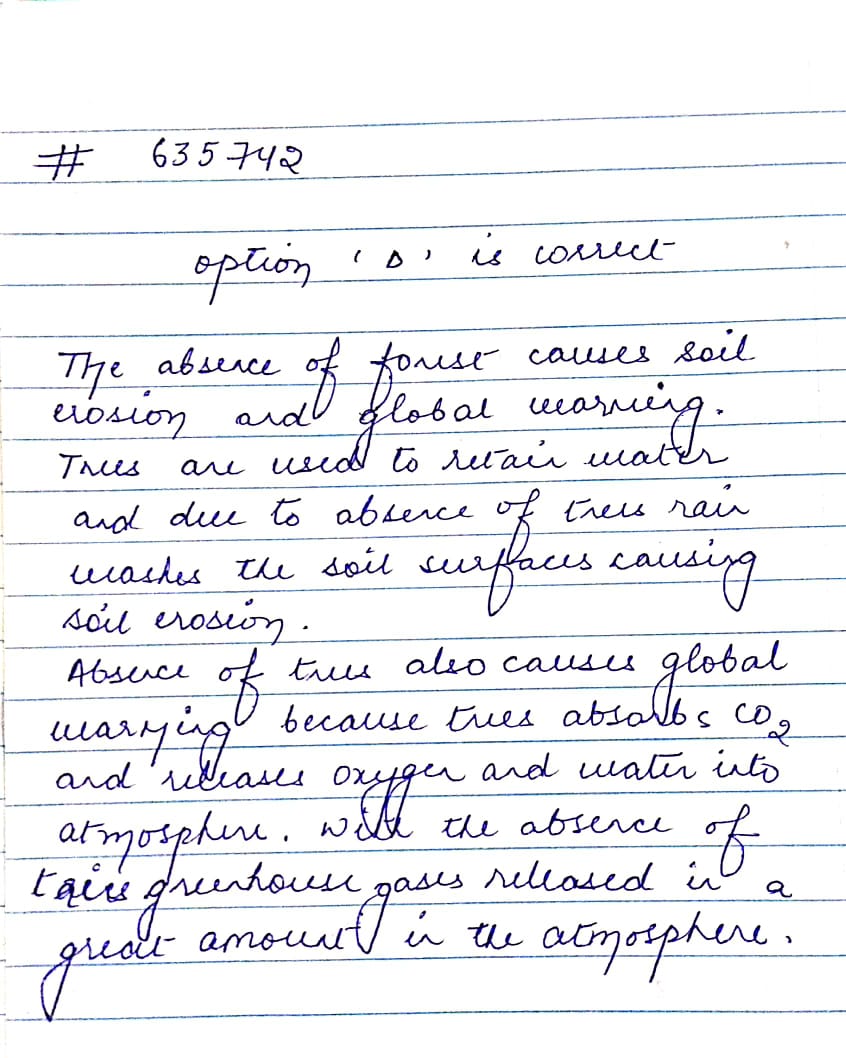 # 635742
option 'D' is correct
The absence of forest causes soil
erosion and global warming.
Trees are used to retain water
and due to absence of trees rain
washes the soil surfaces causing
soil erosion.
Absence of trees also causes global
warming because trees absorbs CO2
and releases oxygen and water into
atmosphere. With the absence of
greenhouse gases released in a
great amount in the atmosphere.